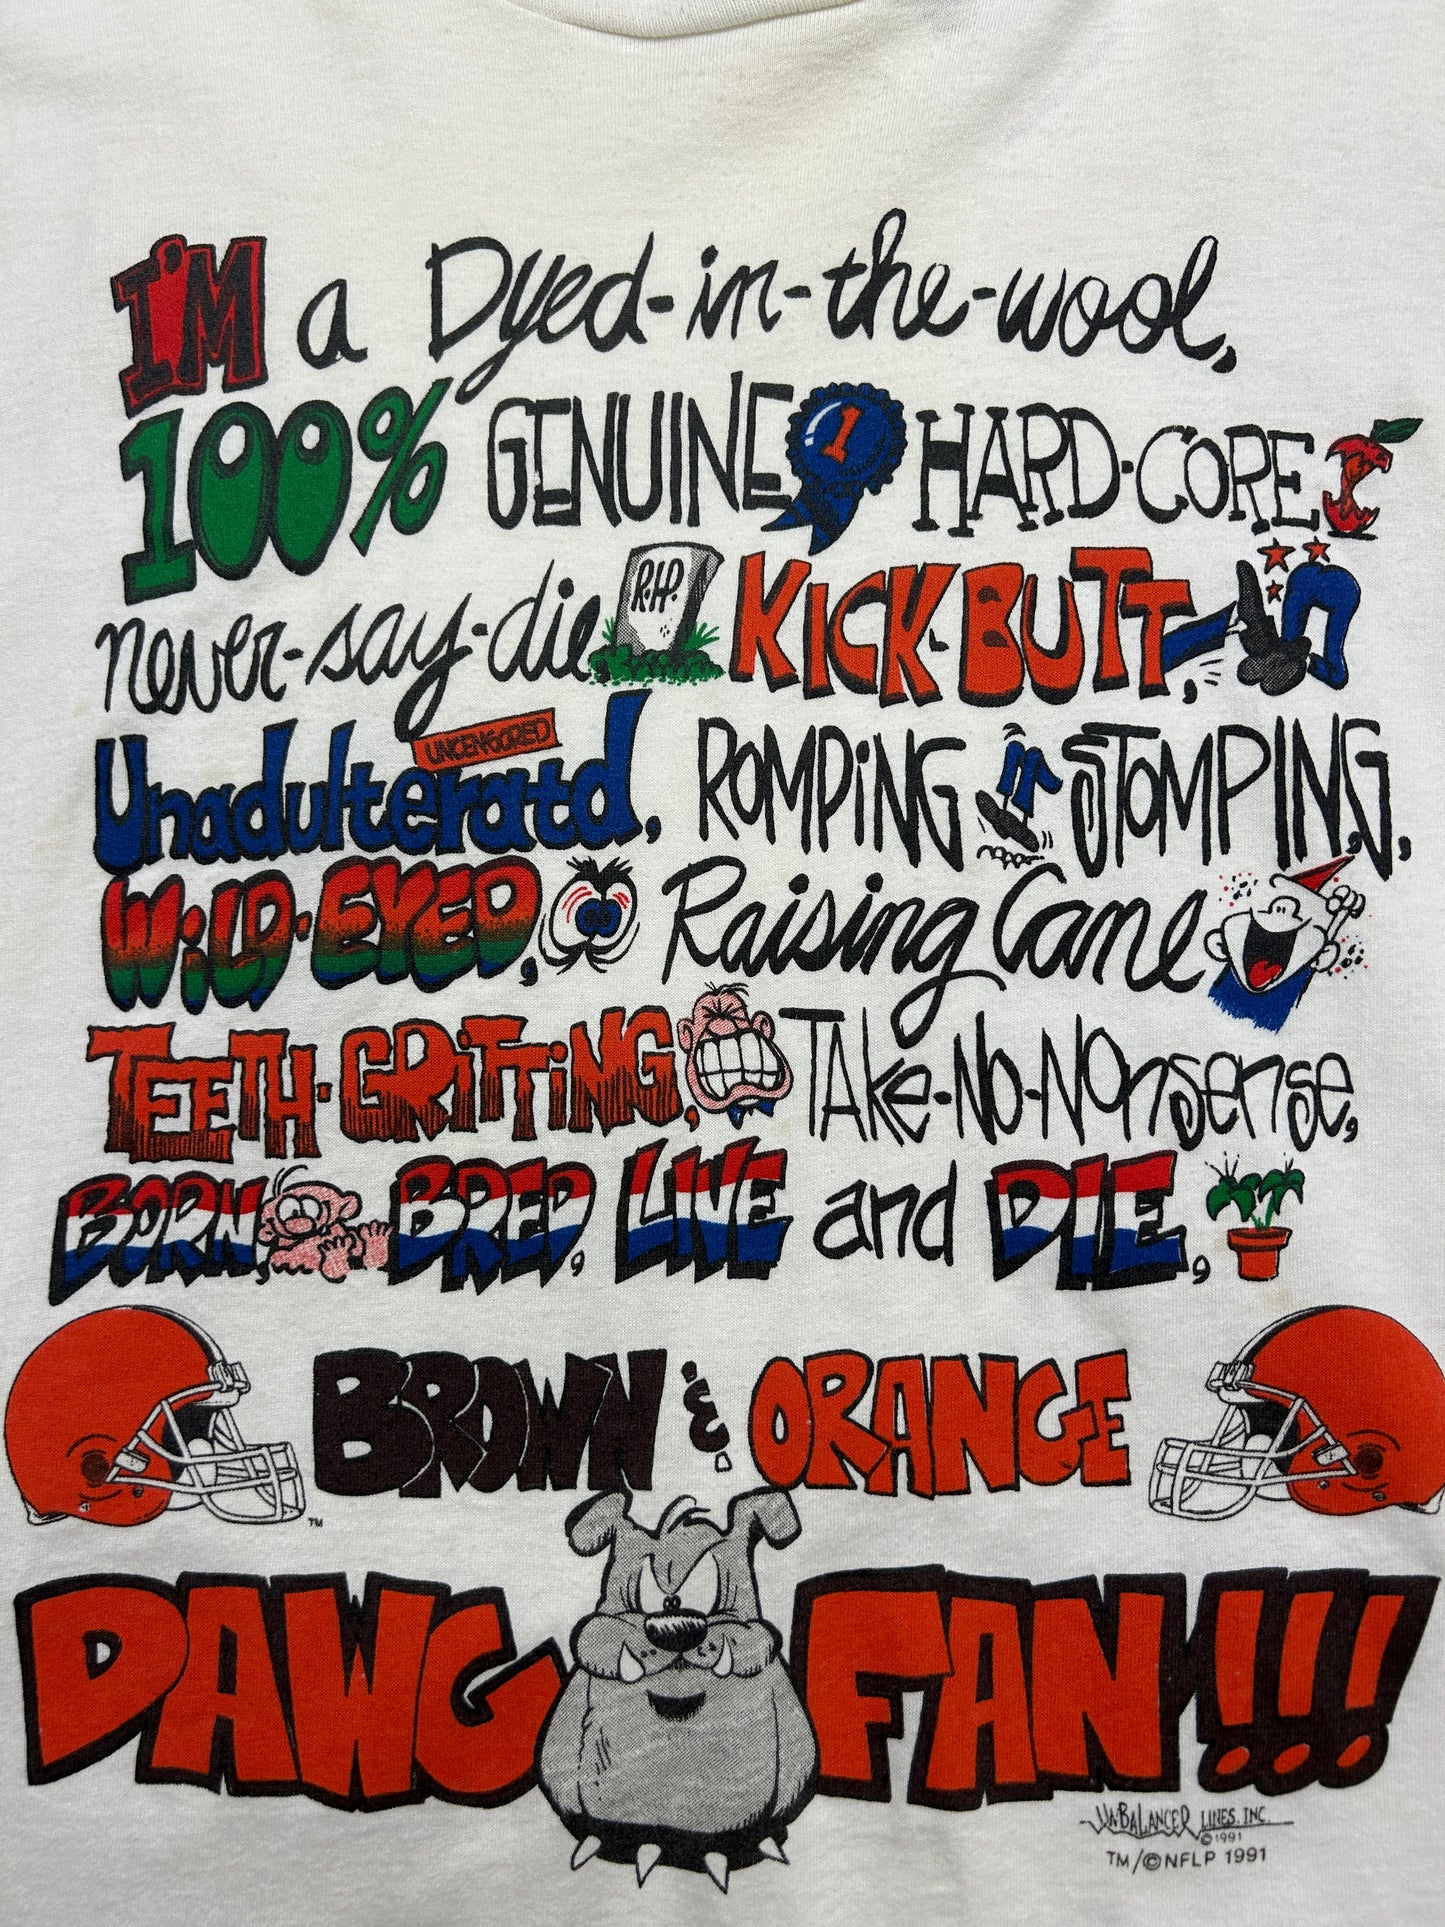 I'M a Dyed-in-the-wool,
100% GENUINE 1 HARD-CORE
never-say-die, R.I.P. KICK-BUTT,
UNCENSORED
Unadulteratd, ROMPiNG STOMPING,
WiLD-EYED, Raising Cane
TEETH-GRiTTiNG, TAke-No-NOnsense,
BORN, BRED, LIVE and DIE,
BROWN & ORANGE
TM
DAWG FAN!!!
UnBALANCER LINES, INC.
©1991
TM/©NFLP 1991